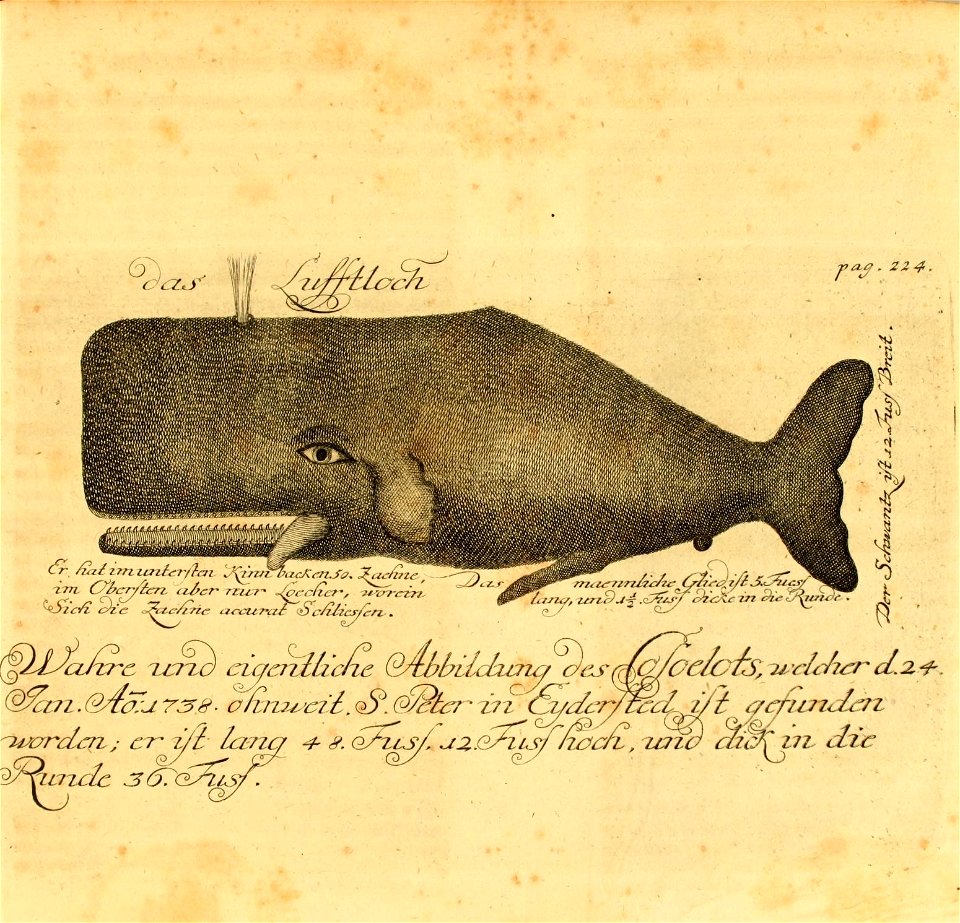 das Lufftloch
pag. 224.
Der Schwantz ist 12 Fuss Breit.
Er hat im untersten Kinn backen 50. Zaehne,
im Obersten aber nur Loecher, worein
Sich die Zaehne accurat Schliessen.
Das maennliche Glied ist 5. Fuess
lang, und 1½. Fuss dicke in die Runde.
Wahre und eigentliche Abbildung des Cosoelots, welcher d. 24.
Jan. Ao. 1738. ohnweit. S. Peter in Eydersted ist gefunden
worden; er ist lang 48. Fuss. 12. Fuss hoch, und dick in die
Runde 36. Fuss.